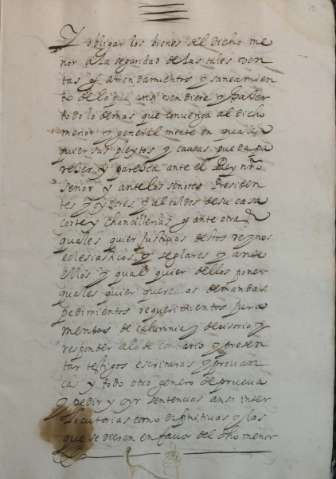 Y obligar los bienes del dicho me
nor a la seguridad de las tales ven
tas y arrendamientos y saneamien
to de lo que ansi vendiere y hazer
todo lo demas que convenga al dicho
menor y generalmente en quales
quier sus pleytos y causas pueda pa
recer y paresca ante el Rey nro
señor y ante los señores Presiden
tes y oydores de su casa
corte y chancilleria y ante otras
quales quier justicias destos reynos
eclesiasticas y seglares y ante
ellos y qual quier dellos poner
quales quier querellas demandas
pedimientos requerimientos jura
mentos de calumnia y decisorio y
responder a lo de contrario y presen
tar testigos escrituras y provan
ças y todo otro genero de prueva
y pedir y oyr sentencias ansi inter
locutorias como difinitivas y las
que se dieren en favor del dho menor